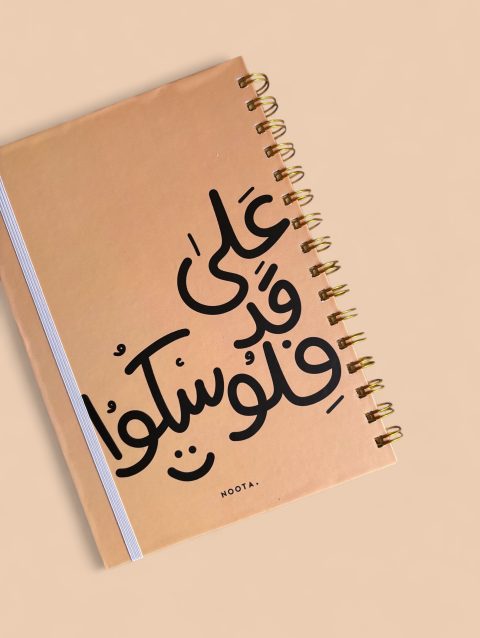 عَلىٰ
قَدِّ
فِلُوسْكُوُا
NOOTA.